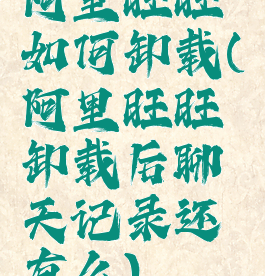 阿里旺旺
如何卸载(
阿里旺旺
卸载后聊
天记录还
有么)